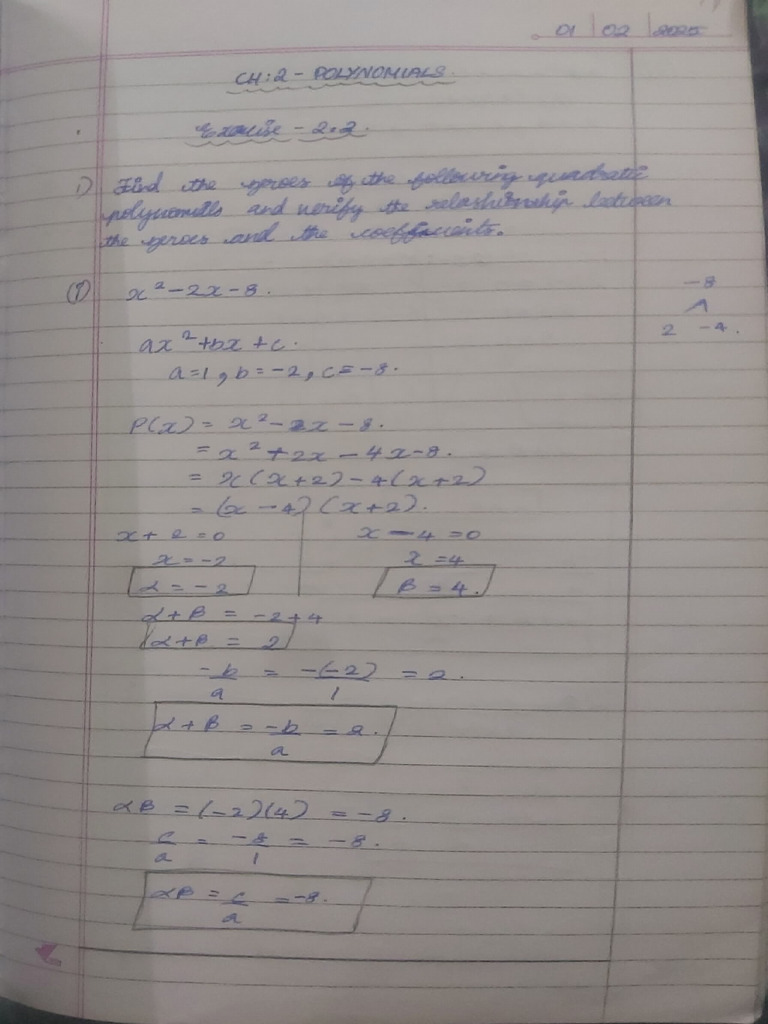 01 | 02 | 2025
CH:2 - POLYNOMIALS.
Exercise - 2.2.
1) Find the zeroes of the following quadratic
polynomills and verify the relationship between
the zeroes and the coefficients.
(i) x² - 2x - 8.
-8
2 -4.
ax² + bx + c.
a = 1, b = -2, c = -8.
P(x) = x² - 2x - 8.
= x² + 2x - 4x - 8.
= x(x+2) - 4(x+2)
= (x - 4) (x+2).
x + 2 = 0 | x - 4 = 0
x = -2 | x = 4
α = -2 | β = 4.
α + β = -2 + 4
α + β = 2
-b/a = -(-2)/1 = 2.
α + β = -b/a = 2.
αβ = (-2)(4) = -8.
c/a = -8/1 = -8.
αβ = c/a = -8.